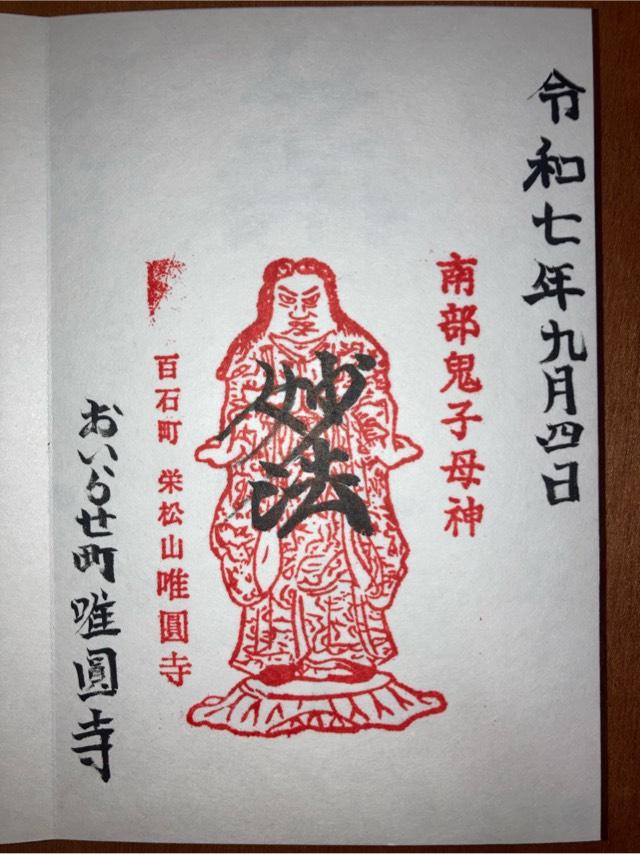 令和七年九月四日
南部鬼子母神
妙法
百石町 栄松山唯圓寺
おいらせ町唯圓寺